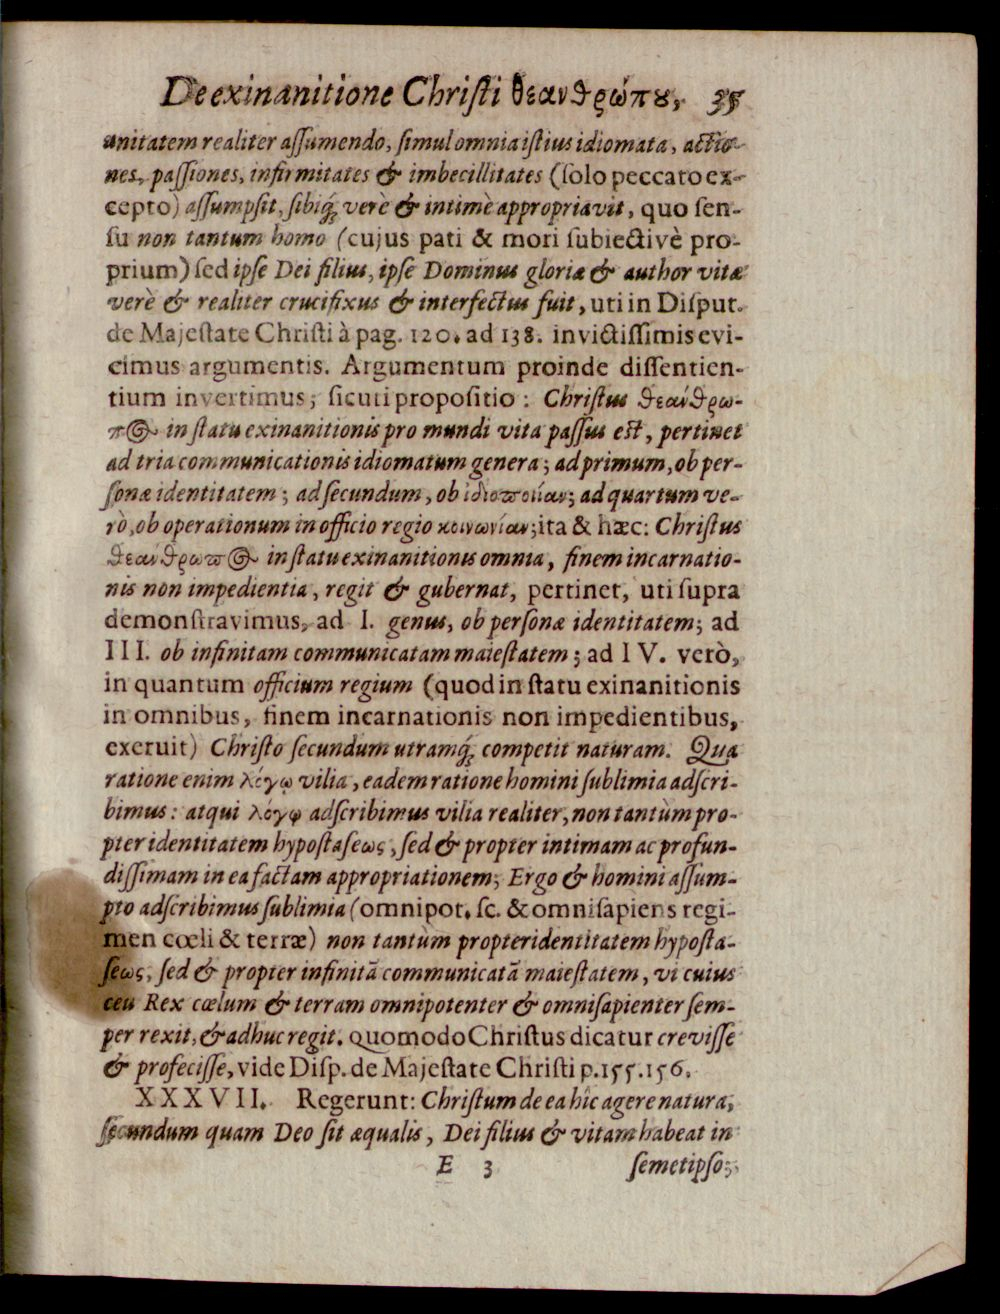 De exinanitione Christi θεανθρώπου, 35
unitatem realiter aſſumendo, ſimul omnia iſtius idiomata, actio-
nes, paſſiones, infirmitates & imbecillitates (ſolo peccato ex-
cepto) aſſumpſit, ſibiq́ꝫ verè & intimè appropriavit, quo ſen-
ſu non tantum homo (cujus pati & mori ſubiectivè pro-
prium) ſed ipſe Dei filius, ipſe Dominus gloriæ & author vitæ
verè & realiter crucifixus & interfectus fuit, uti in Diſput.
de Majeſtate Chriſti à pag. 120. ad 138. invictiſſimis evi-
cimus argumentis. Argumentum proinde diſſentien-
tium invertimus; ſicuti propoſitio: Chriſtus θεάνθρω-
πος in ſtatu exinanitionis pro mundi vita paſſus eſt, pertinet
ad tria communicationis idiomatum genera; ad primum, ob per-
ſonæ identitatem; ad ſecundum, ob ἰδιοποιίαν; ad quartum ve-
rò, ob operationum in officio regio κοινωνίαν; ita & hæc: Chriſtus
θεάνθρωπος in ſtatu exinanitionis omnia, finem incarnatio-
nis non impedientia, regit & gubernat, pertinet, uti ſupra
demonſtravimus, ad I. genus, ob perſonæ identitatem; ad
III. ob infinitam communicatam maieſtatem; ad IV. verò,
in quantum officium regium (quod in ſtatu exinanitionis
in omnibus, finem incarnationis non impedientibus,
exeruit) Chriſto ſecundum utramq́ꝫ competit naturam. Qua
ratione enim λόγῳ vilia, eadem ratione homini ſublimia adſcri-
bimus: atqui λόγῳ adſcribimus vilia realiter, non tantùm pro-
pter identitatem hypoſtaſεως, ſed & propter intimam ac profun-
diſſimam in ea factam appropriationem; Ergo & homini aſſum-
pto adſcribimus ſublimia (omnipot. ſc. & omniſapiens regi-
men cœli & terræ) non tantùm propter identitatem hypoſta-
ſεως, ſed & propter infinitã communicatã maieſtatem, vi cuius
ceu Rex cœlum & terram omnipotenter & omniſapienter ſem-
per rexit, & adhuc regit. quomodo Chriſtus dicatur creviſſe
& profeciſſe, vide Diſp. de Majeſtate Chriſti p. 155. 156.
XXXVII. Regerunt: Chriſtum de ea hîc agere natura,
ſecundum quam Deo ſit æqualis, Dei filius & vitam habeat in
E 3 ſemetipſo;